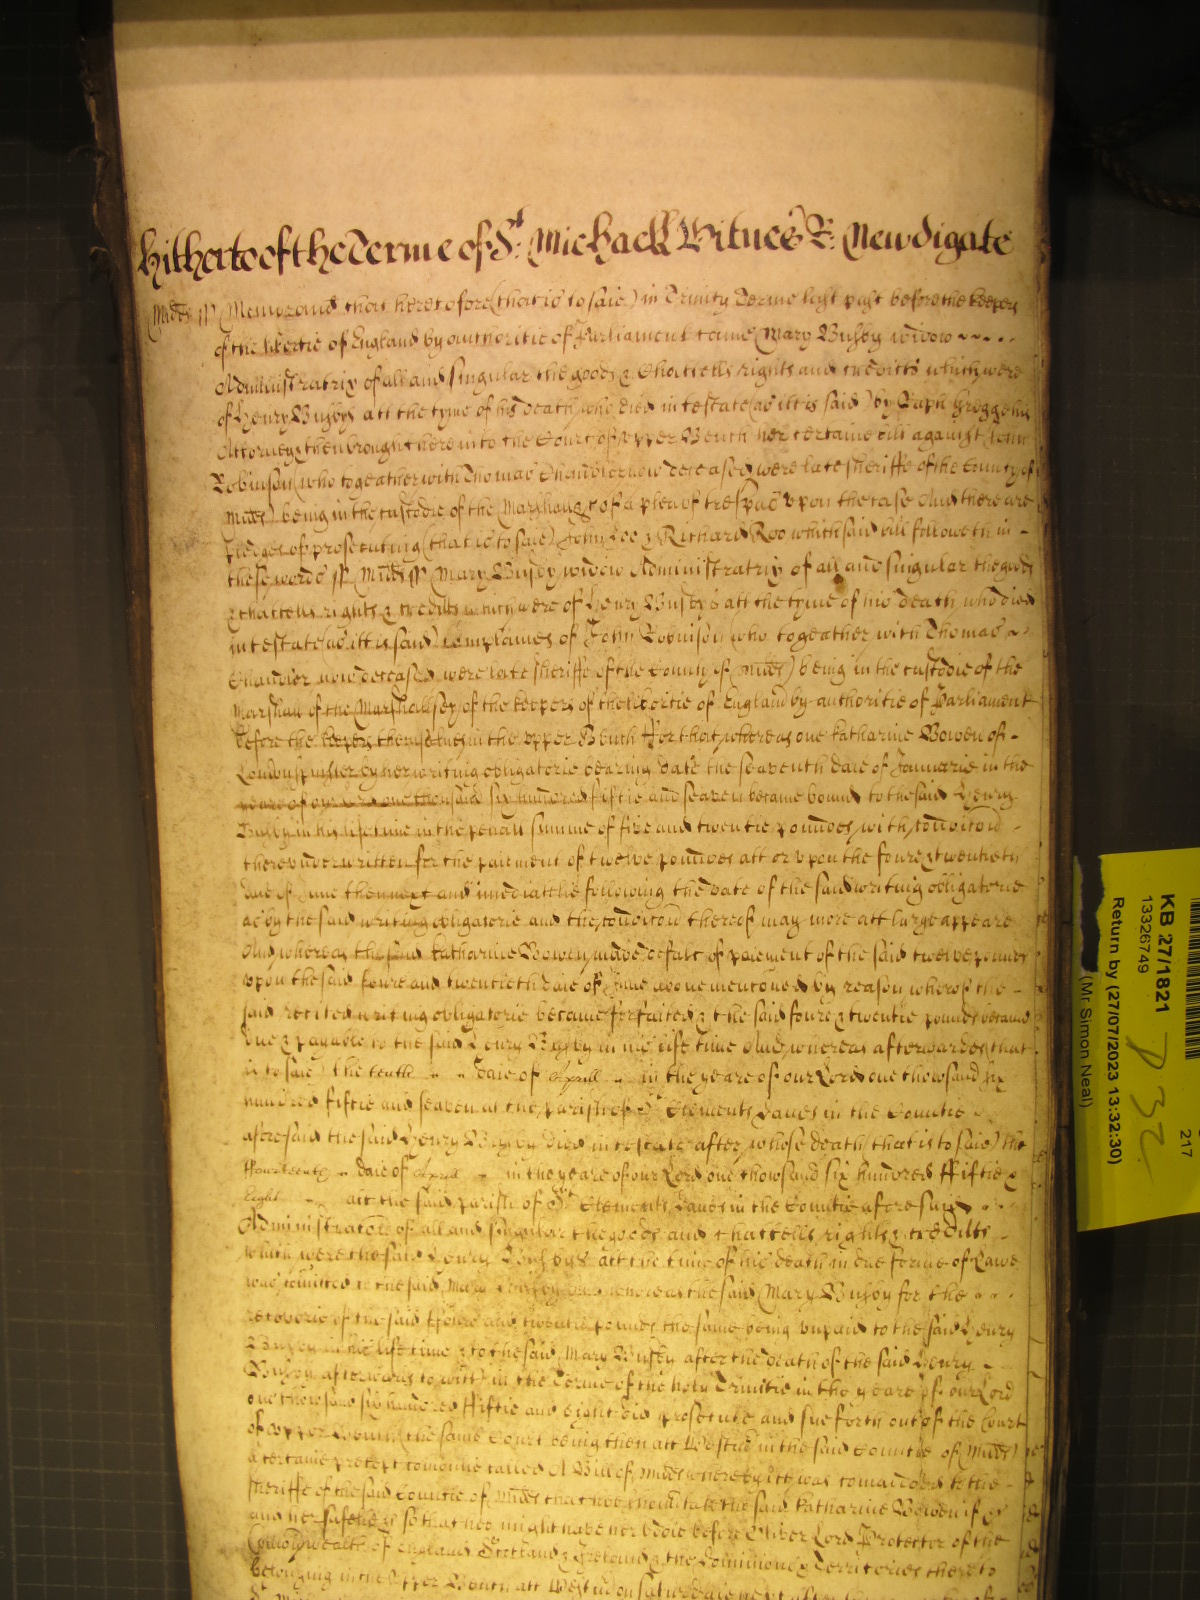 hitherto of the Terme of St. Michaell Witnes R: Newdigate
Midds ss Memorand that heretofore (that is to saie) in Trinity Terme last past before the keepers
of the libertie of England by authoritie of Parliament came Mary Busby widow
Administratrix of all and singular the goods & Chattells rights and creditts which were
of Henry Busbys att the tyme of his death who died intestate (as itt is said) by Raph
Attorney & then brought here into the Court of upper Bench her certaine bill against John
Robinson (who togeather with Thomas Chandler now deceased were late sheriffe of the County of
Midds) being in the custodie of the Marshall &c of a plea of trespas upon the case And there are
pledges of prosecuting (that is to saie) John Doe & Richard Roo which said bill followeth in
these words ss Midds ss Mary Busby widow Administratrix of all and singular the goods
& chattells rights & creditts which were of Henry Busbys att the tyme of his death who died
intestate (as itt is said) complaines of John Robinson (who togeather with Thomas
Chandler now deceased were late sheriffe of the County of Midds) being in the custodie of the
Marshall of the Marshallsey of the keepers of the libertie of England by authoritie of Parliament
before the keepers themselves in the upper Bench ffor that whereas one Katharine Bowen of
London by her writing obligatorie bearing date the seaventh daie of Januarie in the
yeare of our Lord one thousand six hundred fiftie and seaven became bound to the said Henry
Busby in his life time in the penall summe of five and twentie poundes with condicion
thereunder written for the paiement of twelve poundes att or upon the foure & twentieth
daie of June then next and imediatlie following the date of the said writing obligatorie
as by the said writing obligatorie and the condicion thereof may more att large appeare
And whereas the said Katharine Bowen made defalt of paiement of the said twelve poundes
upon the said foure and twentieth daie of June above mencioned by reason whereof the
said recited writing obligatorie became forfaited & the said foure & twentie poundes became
due & payable to the said Henry Busby in his life time And whereas afterwardes (that
is to saie) the tenth daie of Aprill in the yeare of our Lord one thowsand six
hundred fiftie and seaven at the parish of St Clements Danes in the Countie
aforesaid the said Henry Busby died intestate after whose death (that is to saie) the
ffourteenth daie of Aprill in the yeare of our Lord one thowsand six hundred ffiftie &
Eight att the said parish of St Clements Danes in the Countie aforesaid
Administracon of all and singular the goods and chattells rights & creditts
which were the said Henry Busbys att the time of his death in due forme of Lawe
was comitted to the said Mary Busby And whereas the said Mary Busby for the
recoverie of the said ffoure and twentie poundes the same being unpaid to the said Henry
Busby in his life time & to the said Mary Busby after the death of the said Henry
Busby afterwards to witt in the Terme of the holy Trinitie in the yeare of our Lord
one thowsand six hundred ffiftie and eight did prosecute and sue forth out of the Court
of upper Bench (the same Court being then att Westm in the said Countie of Midds)
a certaine precept comonlie called A Bill of Midds whereby itt was comanded to the
sheriffe of the said Countie of Midds that hee should take the said Katharine Bowen if &c
and her safelie &c so that hee might have her bodie before Oliver Lord Protector of the
Comonwealth of England Scotland & Ireland & the dominions & Territories thereto
belonging in the upper Bench att Westm on
KB 27/1821
13326749
Return by (27/07/2023 13:32:30)
(Mr Simon Neal)
217
P 32